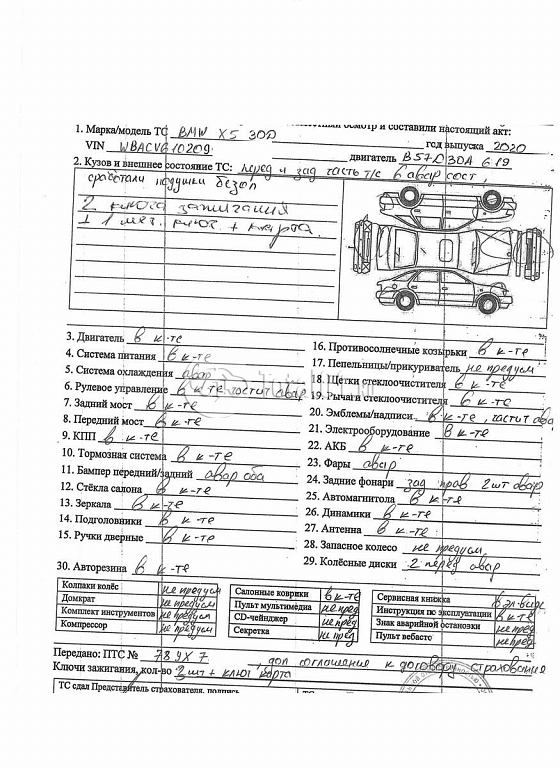 осмотр и составили настоящий акт:
1. Марка/модель ТС BMW X5 30D
VIN WBACV610209 год выпуска 2020
двигатель B57D30A 619
2. Кузов и внешнее состояние ТС: перед и зад часть т/с в авар сост,
сработали подушки безоп
2 ключа зажигания
+ 1 мет. ключ. + карта
3. Двигатель в к-те
4. Система питания в к-те
5. Система охлаждения авар
6. Рулевое управление в к-те, частич авар
7. Задний мост в к-те
8. Передний мост в к-те
9. КПП в к-те
10. Тормозная система в к-те
11. Бампер передний/задний авар оба
12. Стёкла салона в к-те
13. Зеркала в к-те
14. Подголовники в к-те
15. Ручки дверные в к-те
16. Противосолнечные козырьки в к-те
17. Пепельницы/прикуриватель не предусм
18. Щетки стеклоочистителя в к-те
19. Рычаги стеклоочистителя в к-те
20. Эмблемы/надписи в к-те, частич авар
21. Электрооборудование в к-те
22. АКБ в к-те
23. Фары авар
24. Задние фонари зад прав 2шт авар
25. Автомагнитола в к-те
26. Динамики в к-те
27. Антенна в к-те
28. Запасное колесо не предусм,
29. Колёсные диски 2 перед авар
30. Авторезина в к-те
Колпаки колёс не предусм
Домкрат не предусм
Комплект инструментов не предусм
Компрессор не предусм
Салонные коврики в к-те
Пульт мультимедиа не пред
CD-чейнджер не пред
Секретка не пред
Сервисная книжка в эл. виде
Инструкция по эксплуатации в к-те
Знак аварийной остановки не пред
Пульт вебасто не пред
Передано: ПТС № 78УХ7 , доп соглашение к договору страхования
Ключи зажигания, кол-во 3шт + ключ карта
ТС сдал Представитель страхователя, подпись